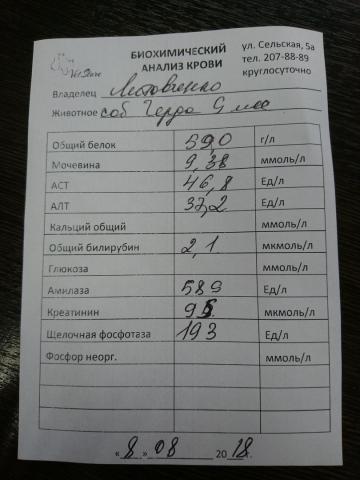 Vet State
БИОХИМИЧЕСКИЙ
АНАЛИЗ КРОВИ
ул. Сельская, 5а
тел. 207-88-89
круглосуточно
Владелец
Животное соб Герда 9 мес
Общий белок 59,0 г/л
Мочевина 9,38 ммоль/л
АСТ 46,8 Ед/л
АЛТ 37,2 Ед/л
Кальций общий ммоль/л
Общий билирубин 2,1 мкмоль/л
Глюкоза ммоль/л
Амилаза 589 Ед/л
Креатинин 95 мкмоль/л
Щелочная фосфотаза 193 Ед/л
Фосфор неорг. ммоль/л
«8» 08 2018г.